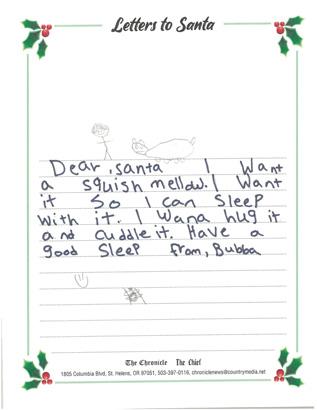 Letters to Santa
Dear, santa I Want
a squish mellow. I Want
it So I can Sleep
With it. I Wana hug it
and cuddle it. Have a
good Sleep from, Bubba
The Chronicle The Chief
1805 Columbia Blvd, St. Helens, OR 97051, 503-397-0116, chroniclenews@countrymedia.net